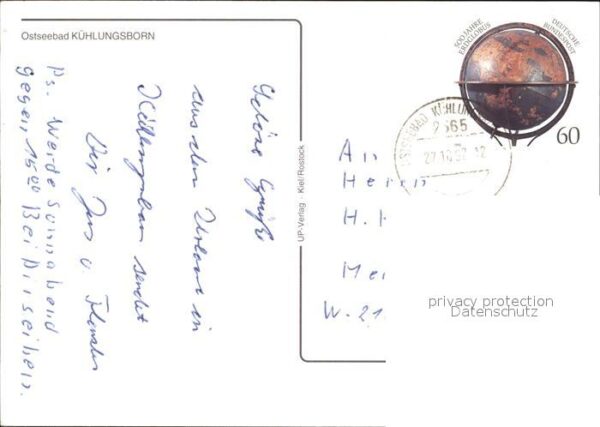 Ostseebad KÜHLUNGSBORN
Schöne Grüße
aus dem Urlaub in
Kühlungsborn sendet
Dir Jens u.
Ps. Werde Sonnabend
gegen 1500 Bei Dir sein.
UP-Verlag · Kiel/Rostock
500 JAHRE
ERDGLOBUS
DEUTSCHE
BUNDESPOST
60
OSTSEEBAD KÜHLUNGS
2565
27.10.92.12
An
Herrn
H.
W-21
privacy protection
Datenschutz